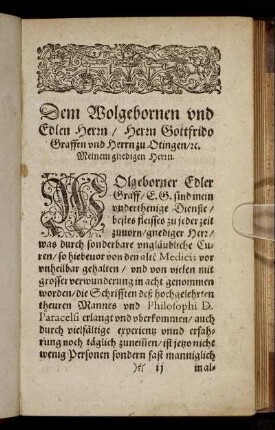 Dem Wolgebornen vnd
Edlen Herrn / Herrn Gottfrido
Graffen vnd Herrn zu Otingen / ꝛc.
Meinem gnedigen Herrn.
WOlgeborner Edler
Graff / E. G. sind mein
vnderthenige Dienste /
bestes fleisses zu jeder zeit
zuuorn / gnediger Herr /
was durch sonderbare vngläubliche Cu-
ren / so hiebeuor von den altē Medicis vor
vnheilbar gehalten / vnd von vielen mit
grosser verwunderung in acht genommen
worden / die Schrifften deß hochgelehrten
theuren Mannes vnd Philosophi D.
Paracelsi erlangt vnd vberkommen / auch
durch vielfältige experientz vnnd erfah-
rung noch täglich zunemē / ist jetzo nicht
wenig Personen sondern fast manniglich
ij in al-